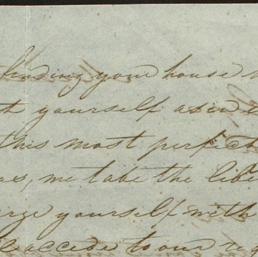 finding your house
yourself as in
this most perfect
as, we take the libe
erge yourself with
accede to our re